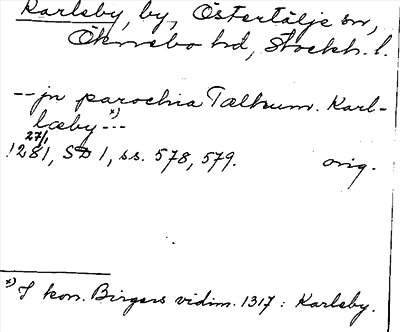 Karlsby, by, Östertälje sn,
Öknebo hd, Stockh. l.
-- jn parochia Tælhium. Karl-
læby x) ---
27/1
1281, SD 1, ss. 578, 579. orig.
x) I kon. Birgers vidim. 1317: Karlsby.